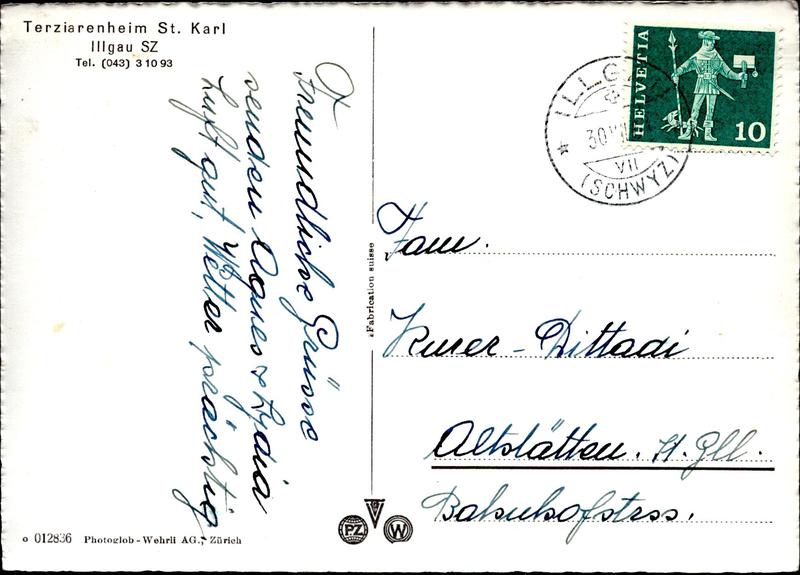 Terziarenheim St. Karl
Illgau SZ
Tel. (043) 3 10 93
Freundliche Grüsse
senden Agnes & Lydia
Luft gut, Wetter prächtig,
o 012836 Photoglob-Wehrli AG., Zürich
Fabrication suisse
PZ
W
HELVETIA
10
ILLGAU
30.VII
VII
(SCHWYZ)
Fam.
Kurer-Dittadi
Altstätten. St. Gll.
Bahnhofstrss.